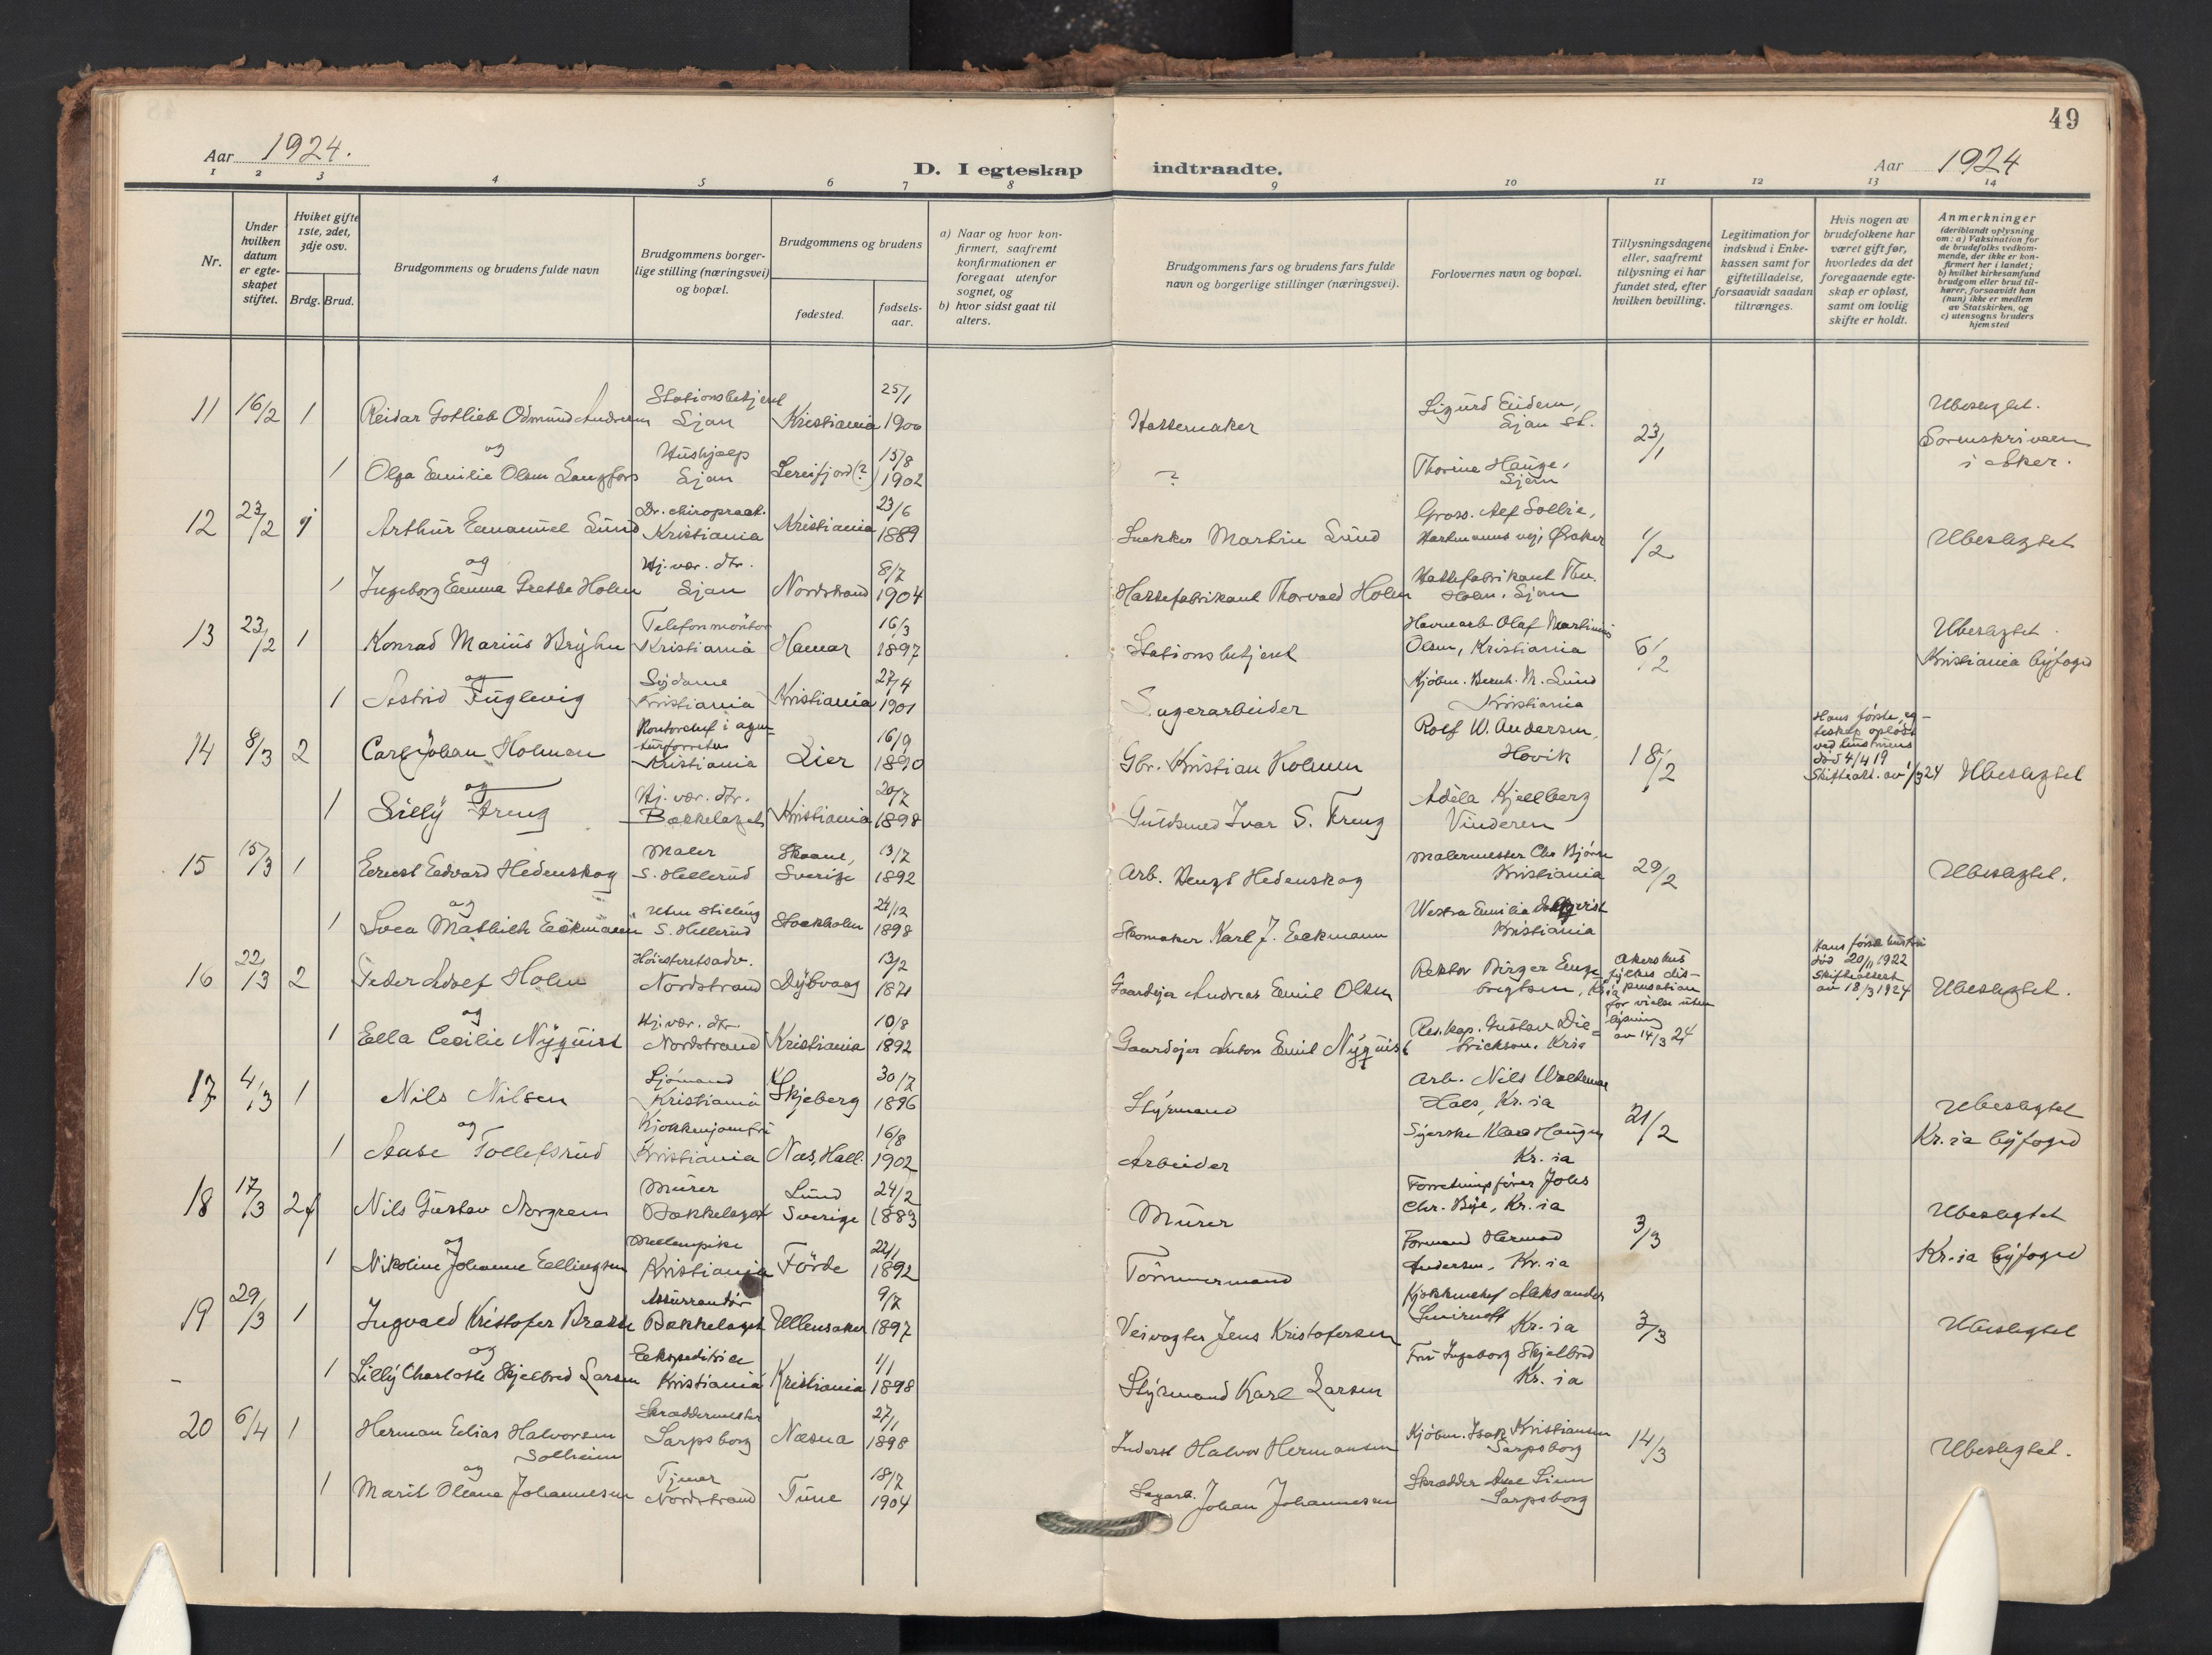 49
Aar 1924.
D. I egteskap indtraadte.
Aar 1924
1 2 3 4 5 6 7 8 9 10 11 12 13 14
Nr.
Under hvilken datum er egteskapet stiftet.
Hviket gifte 1ste, 2det, 3dje osv.
Brdg. Brud.
Brudgommens og brudens fulde navn
Brudgommens borgerlige stilling (næringsvei) og bopæl.
Brudgommens og brudens
fødested.
fødselsaar.
a) Naar og hvor konfirmert, saafremt konfirmationen er foregaat utenfor sognet, og
b) hvor sidst gaat til alters.
Brudgommens fars og brudens fars fulde navn og borgerlige stillinger (næringsvei).
Forlovernes navn og bopæl.
Tillysningsdagene eller, saafremt tillysning ei har fundet sted, efter hvilken bevilling.
Legitimation for indskud i Enkekassen samt for giftetilladelse, forsaavidt saadan tiltrænges.
Hvis nogen av brudefolkene har været gift før, hvorledes da det foregaaende egteskap er opløst, samt om lovlig skifte er holdt.
Anmerkninger (deriblandt oplysning om: a) Vaksination for de brudefolks vedkommende, der ikke er konfirmert her i landet; b) hvilket kirkesamfund brudgom eller brud tilhører, forsaavidt han (hun) ikke er medlem av Statskirken, og c) utensogns bruders hjemsted
11 16/2 1 Reidar Gotlieb Odmund Andresen Stationsbetjent Ljan Kristiania 25/1 1900 Hattemaker Sigurd Eidem, Ljan st. 23/1 Ubeslegtet. Sorenskriveren i Aker.
og
1 Olga Emilie Olsen Langfors Hushjælp Ljan Lereifjord (?) 15/8 1902 ? Thorine Hauge, Ljan
12 23/2 1 Arthur Emanuel Lund Dr. chiropract. Kristiania Kristiania 23/6 1889 Snekker Martin Lund Gross. Alf Sollie, Hartmanns vej, Øraker 1/2 Ubeslegtet
og
1 Ingeborg Emma Grethe Holm Hj. vær. dtr. Ljan Nordstrand 8/7 1904 Hattefabrikant Thorvald Holm Hattefabrikant Thv. Holm, Ljan
13 23/2 1 Konrad Marius Bryhn Telefonmontør Kristiania Hamar 16/3 1897 Stationsbetjent Havnearb. Olaf Martinius Olsen, Kristiania 6/2 Ubeslegtet. Kristiania byfoged
og
1 Astrid Fuglevig Sydame Kristiania Kristiania 27/4 1901 Lagerarbeider Kjøbm. Bernh. M. Lund Kristiania
14 8/3 2 Carl Johan Holmen Kontorchef i agenturforretn. Kristiania Lier 16/9 1890 Gbr. Kristian Holmen Rolf W. Andersen, Høvik 18/2 Hans første egteskap opløst ved hustruens død 4/4 19 Skifteatt. av 1/3 24 Ubeslegtet
og
1 Lilly Freng Hj. vær. dtr. Bækkelaget Kristiania 20/7 1898 Guldsmed Ivar S. Freng Adela Kjellberg Vinderen
15 15/3 1 Ernst Edvard Hedenskog Maler S. Hellerud Skaane, Sverige 13/7 1892 Arb. Bengt Hedenskog Malermester Chr Bjørn Kristiania 29/2 Ubeslegtet.
og
1 Svea Mathilde Eekmann Uten stilling S. Hellerud Stockholm 24/12 1898 Skomaker Karl J. Eekmann Emilia Kristiania
16 22/3 2 Peder Adolf Holm Høiesteretsadv. Nordstrand Dybvaag 13/2 1871 Gaardejer Andreas Emil Olsen Rektor Birger Kria Akershus fylkes dispensation for vielse uten lysning av 14/3 24 Hans første hustru død 20/11 1922 Skifteattest av 18/3 1924 Ubeslegtet.
og
1 Ella Cecilie Nyquist Hj. vær. dtr. Nordstrand Kristiania 10/8 1892 Gaardejer Anton Emil Nyquist Res. kap. Gustav Kria
17 4/3 1 Nils Nilsen Sjømand Kristiania Skjeberg 30/7 1896 Styrmand Arb. Nils Waldemar Hals, Kr.ia 21/2 Ubeslegtet Kr.ia byfoged
og
1 Aase Tollefsrud Kjøkkenjomfru Kristiania Næs, Hall. 16/8 1902 Arbeider Syerske Klara Haugen Kr.ia
18 17/3 2 f Nils Gustav Norgren Murer Bækkelaget Lund Sverige 24/2 1883 Murer Forretningsfører Johs Chr. Bye, Kr.ia 3/3 Ubeslegtet Kr.ia byfoged
og
1 Nikoline Johanne Ellingsen Mellempike Kristiania Førde 22/1 1892 Tømmermand Formand Herman Andersen, Kr.ia
19 29/3 1 Ingvald Kristofer Braste Assurandør Bækkelaget Ullensaker 9/7 1897 Veivogter Jens Kristofersen Kjøkkenchef Aleksander Smirnoff Kr.ia 3/3 Ubeslegtet
og
1 Lilly Charlotte Skjelbred Larsen Ekspeditrice Kristiania Kristiania 1/1 1898 Styrmand Karl Larsen Fru Ingeborg Skjelbred Kr.ia
20 6/4 1 Herman Elias Halvorsen Solheim Skræddermester Sarpsborg Næsna 27/1 1898 Inderst Halvor Hermansen Kjøbm. Isak Kristiansen Sarpsborg 14/3 Ubeslegtet.
og
1 Marit Oleana Johannesen Tjener Nordstrand Tune 18/7 1904 Sagarb. Johan Johannesen Skrædder Axel Linn Sarpsborg